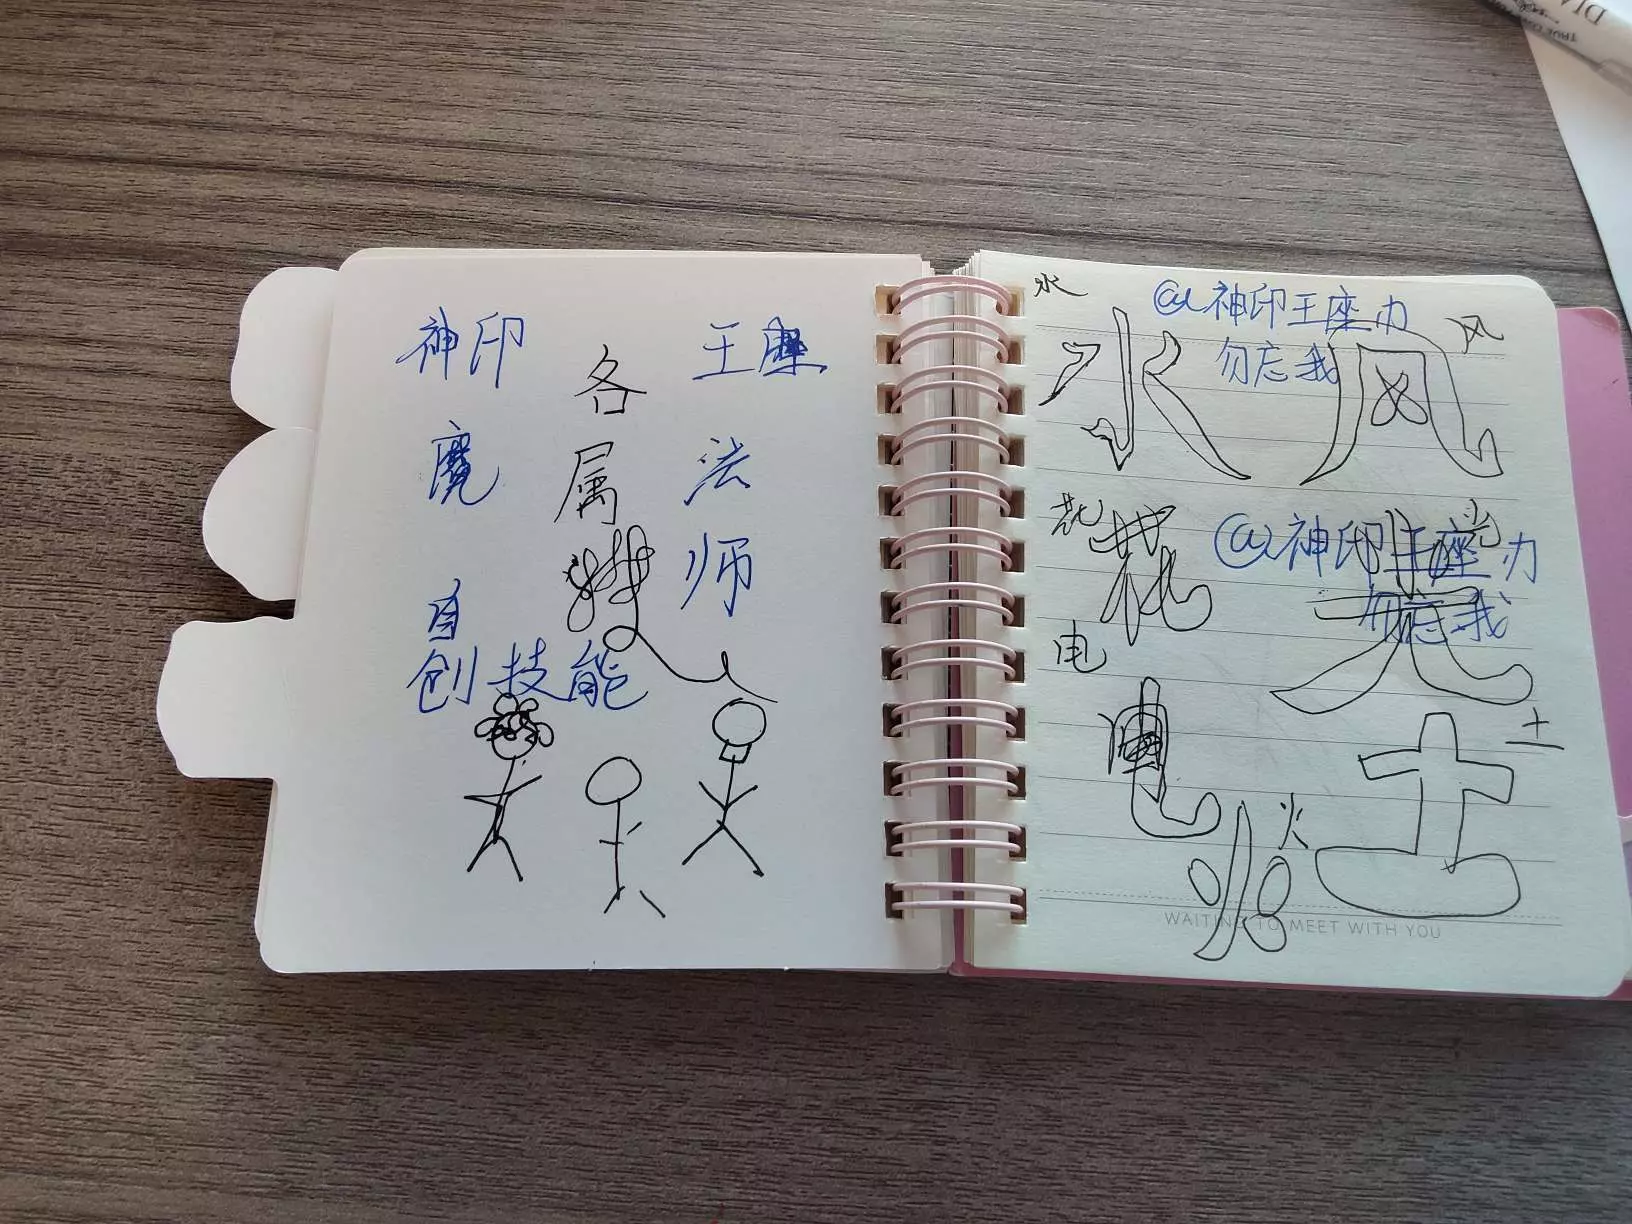 神印 王座
各
魔 属 法
师
自
创技能
水 @神印王座办
水 勿忘我 风 风
花 花 光
@神印王座办
光 勿忘我
电
电 土
土
火
火
WAITING TO MEET WITH YOU
TRUE
DIA